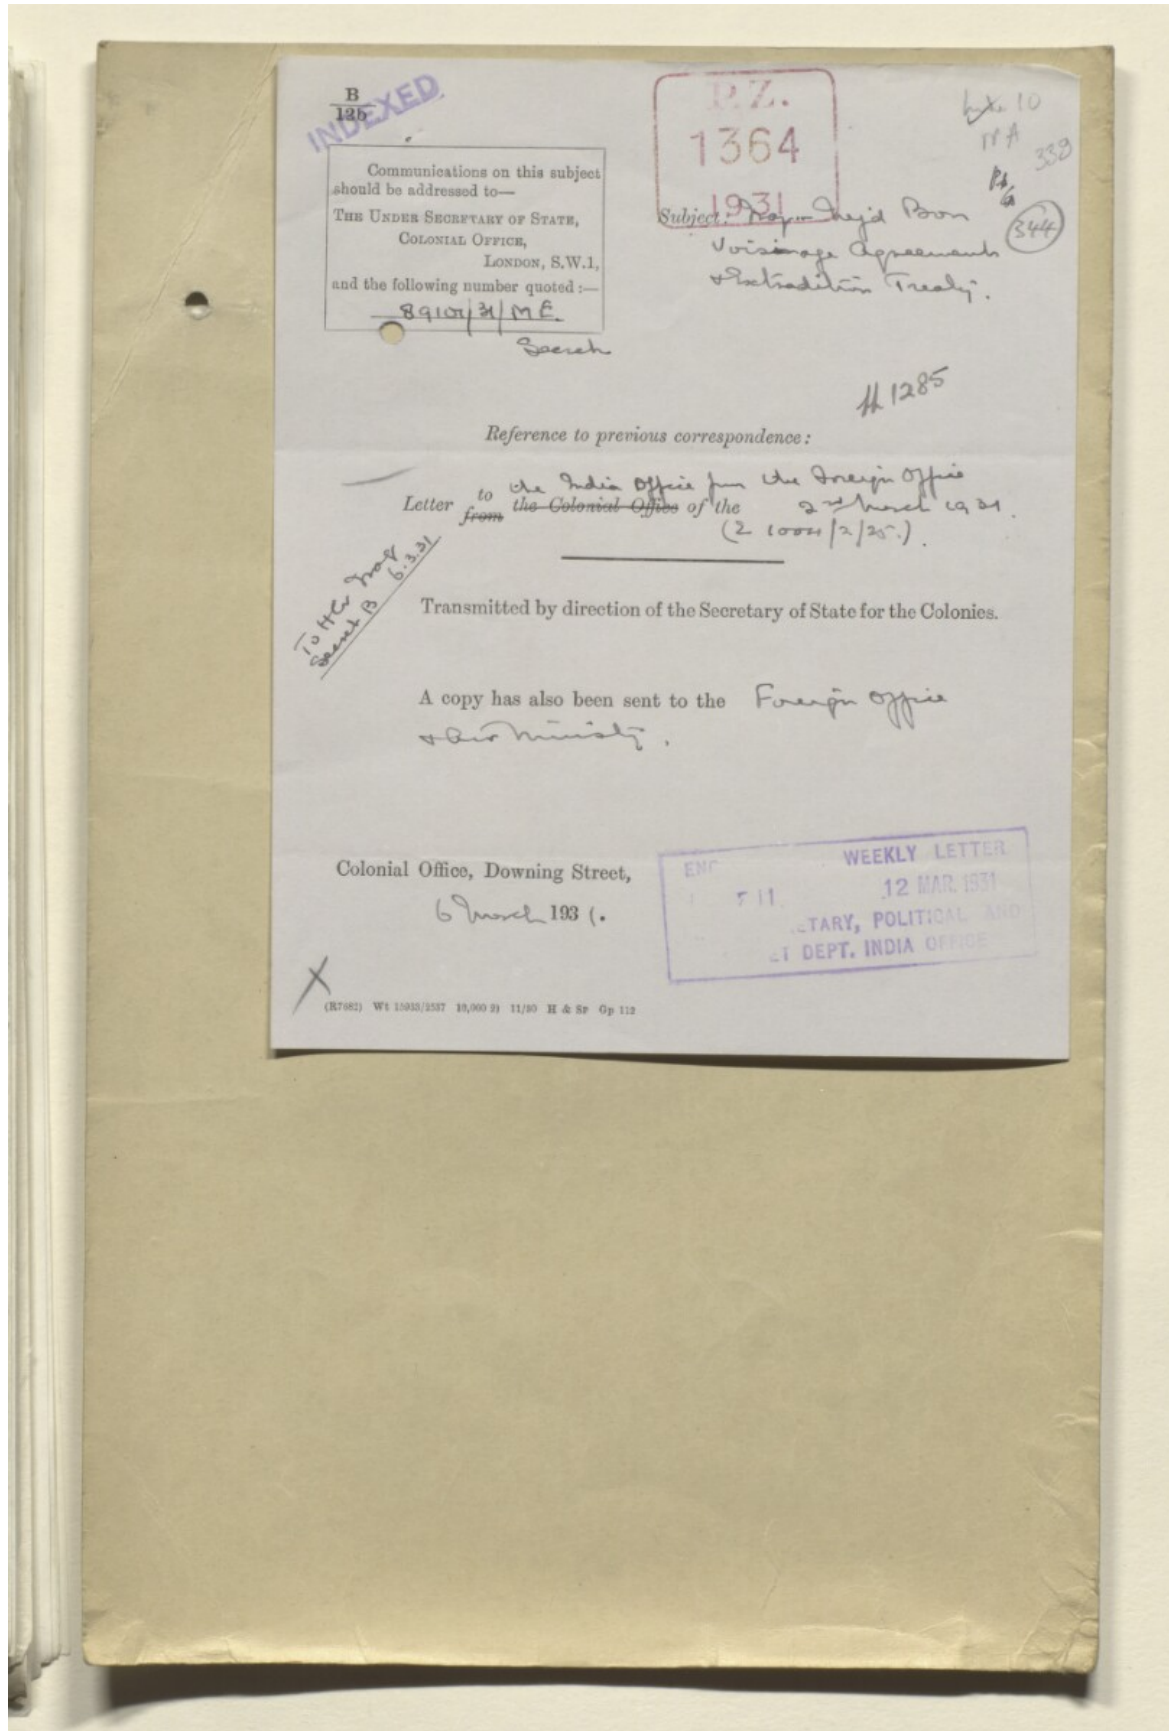 B
12b
INDEXED
P.Z.
1364
1931
10
339
344
Communications on this subject
should be addressed to—
THE UNDER SECRETARY OF STATE,
COLONIAL OFFICE,
LONDON, S.W.1,
and the following number quoted :—
89101/31/M.E.
Secret
Subject: Iraq - Nejd Bon
Voisinage Agreements
& Extradition Treaty.
1285
Reference to previous correspondence :
to the India Office from the Foreign Office
Letter from the Colonial Office of the 2nd March 1931.
(E 1004/2/25.).
To HCr Iraq
Secret B 6.3.31
Transmitted by direction of the Secretary of State for the Colonies.
A copy has also been sent to the Foreign Office
& Air Ministry.
Colonial Office, Downing Street,
6 March 1931.
WEEKLY LETTER
12 MAR. 1931
ETARY, POLITICAL AND
ET DEPT. INDIA OFFICE
11/30 H & Sp Gp 112